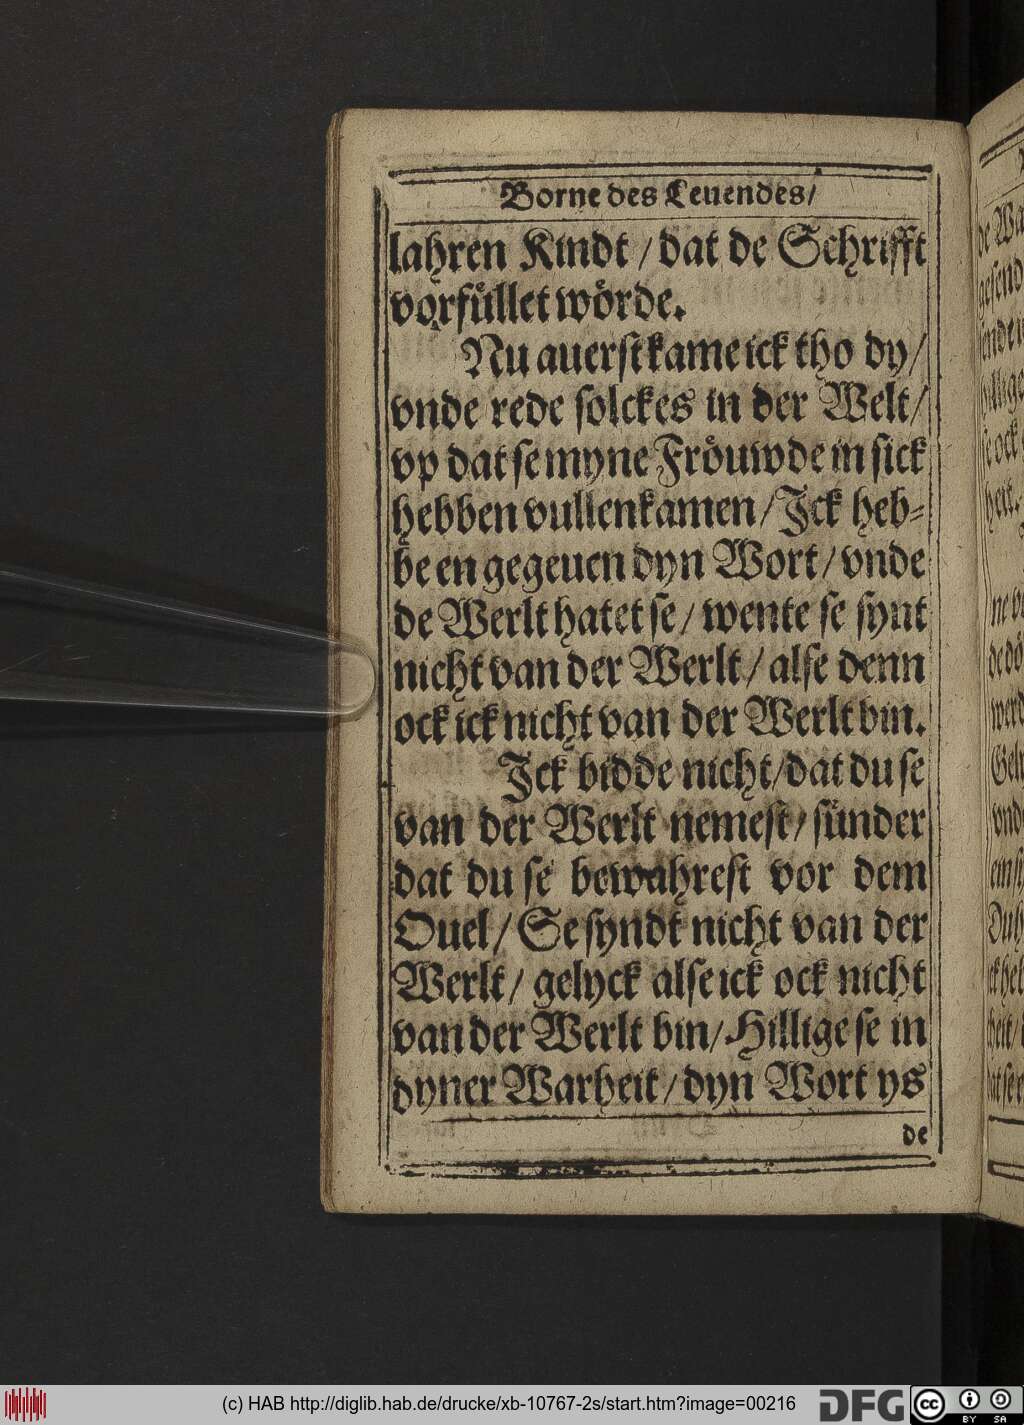 Borne des Leuendes/
lahren Kindt / dat de Schrifft
vorfüllet wörde.
Nu auerst kame ick tho dy/
vnde rede solckes in der Welt/
vp dat se myne Fröuwde in sick
hebben vullenkamen / Jck heb-
be en gegeuen dyn Wort / vnde
de Werlt hatet se / wente se synt
nicht van der Werlt / alse denn
ock ick nicht van der Werlt bin.
Jck bidde nicht / dat du se
van der Werlt nemest / sünder
dat du se bewahrest vor dem
Ouel / Se syndt nicht van der
Werlt / gelyck alse ick ock nicht
van der Werlt bin / Hillige se in
dyner Warheit / dyn Wort ys
de
(c) HAB http://diglib.hab.de/drucke/xb-10767-2s/start.htm?image=00216
DFG
cc BY SA